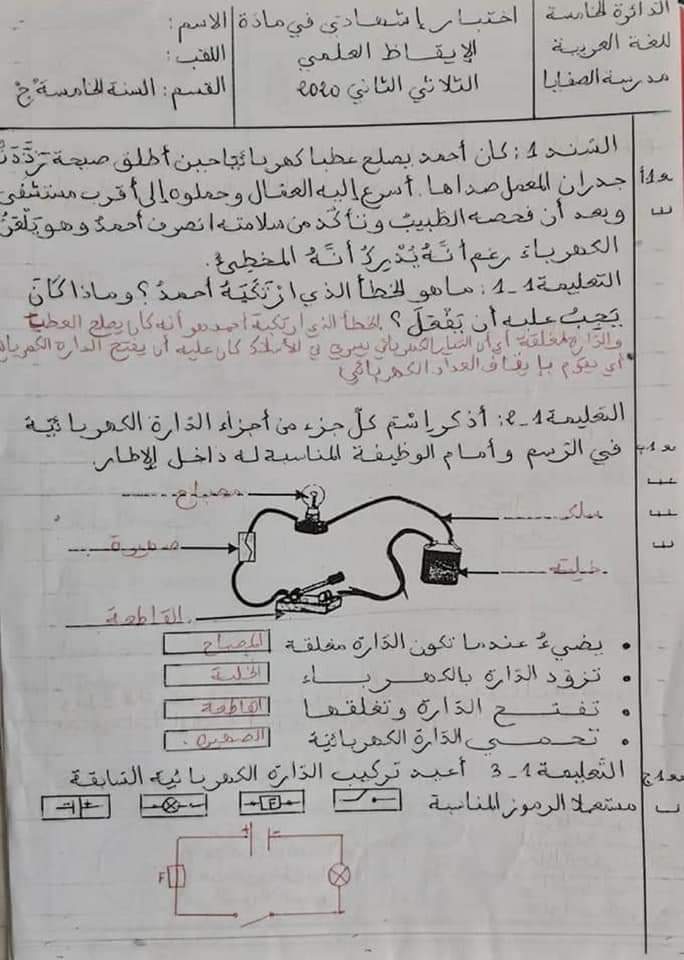 الدائرة الخامسة
للغة العربية
مدرسة الصفايا
اختبار إشهادي في مادة
الإيقاظ العلمي
الثلاثي الثاني 2020
الاسم:
اللقب:
القسم: السنة الخامسة "ج"
السّند 1: كان أحمد يصلح عطبا كهربائيّا حين أطلق صيحة ردّدت
جدران المعمل صداها. أسرع إليه العمّال وحملوه إلى أقرب مستشفى
وبعد أن فحصه الطّبيبُ وتأكّد من سلامته انصرف أحمدُ وهو يَلْعَنُ
الكهرباءَ رغم أنّهُ يُدْرِكُ أنّهُ المخطِئُ.
التعليمة 1-1: ماهو الخطأ الذي ارْتَكَبَهُ أحمدُ؟ وماذا كَانَ
يَجِبُ عليه أن يَفْعَلَ؟ الخطأ الذي ارتكبه أحمد هو أنه كان يصلح العطب
والدّارة مغلقة أي أن التيار الكهربائي يسري في الأسلاك كان عليه أن يفتح الدارة الكهربائية
أي يقوم بإيقاف العداد الكهربائي
التعليمة 1-2: أذكر اِسْم كلّ جزء من أجزاء الدّارة الكهربائيّة
في الرّسم وأمام الوظيفة المناسبة له داخل الإطار.
مصباح
سلك
صهيرة
خلية
القاطعة
• يضيءُ عندما تكون الدّارة مغلقة المصباح
• تزوّد الدّارة بالكهرباء الخلية
• تفتح الدّارة وتغلقها القاطعة
• تحمي الدّارة الكهربائيّة الصهيرة.
التّعليمة 1-3 أعيد تركيب الدّارة الكهربائية السّابقة
مستعملا الرموز المناسبة
F
+ -
F
مع 1أ
مع 1ب
مع 1ج